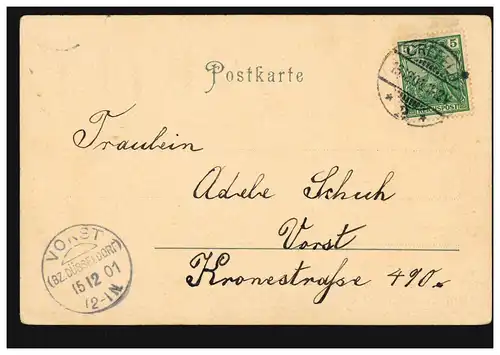 Postkarte
5
Fraulein
Adele Schuh
Vorst
Kronestraße 490.
VORST
(BZ. DÜSSELDORF)
15 12 01
12-1N
CREFELD
REICHSPOST